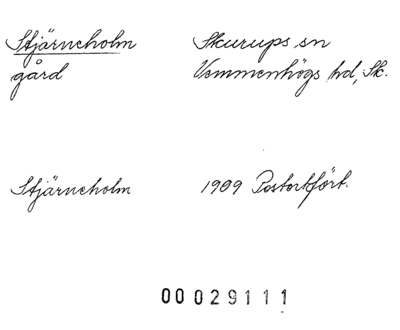 Stjärneholm Skurups sn
gård Vemmenhögs hd, Sk.
Stjärneholm 1909 Postortfört.
00 029111